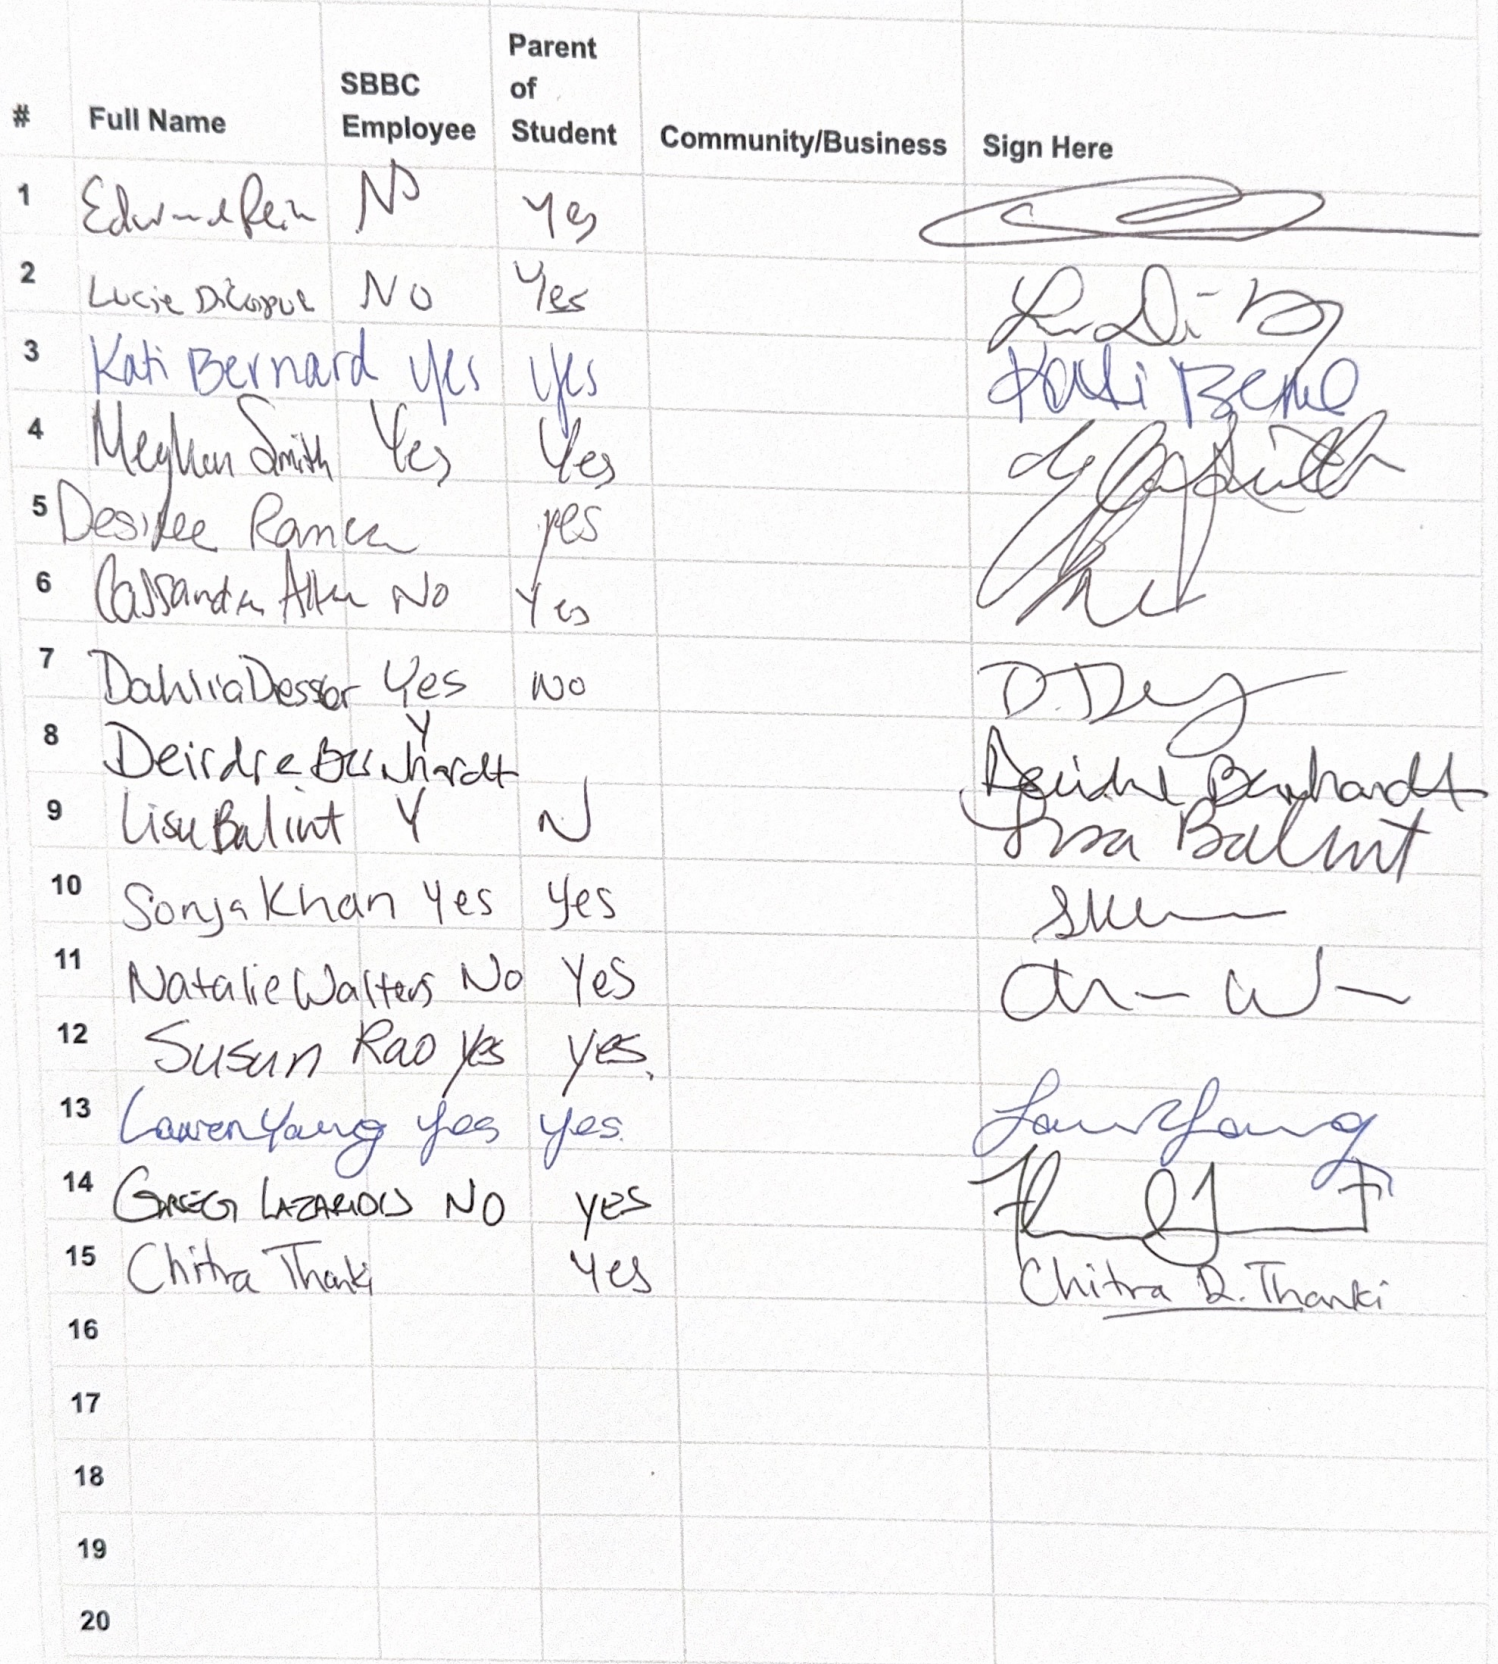 # Full Name SBBC Employee Parent of Student Community/Business Sign Here
1 No Yes
2 Lucie No Yes
3 Kati Bernard yes yes Kati
4 Meghan Smith Yes Yes
5 Desiree yes
6 Cassandra No Yes
7 Dahlia Dessor Yes No
8 Deirdre Bernhardt Y Deirdre Bernhardt
9 Lisa Balint Y N Lisa Balint
10 Sonja Khan Yes yes
11 Natalie Walters No Yes
12 Susan Rao yes yes.
13 Lauren Young yes yes.
14 GREG LAZARIDIS NO YES
15 Chitra Thanki Yes Chitra R. Thanki
16
17
18
19
20